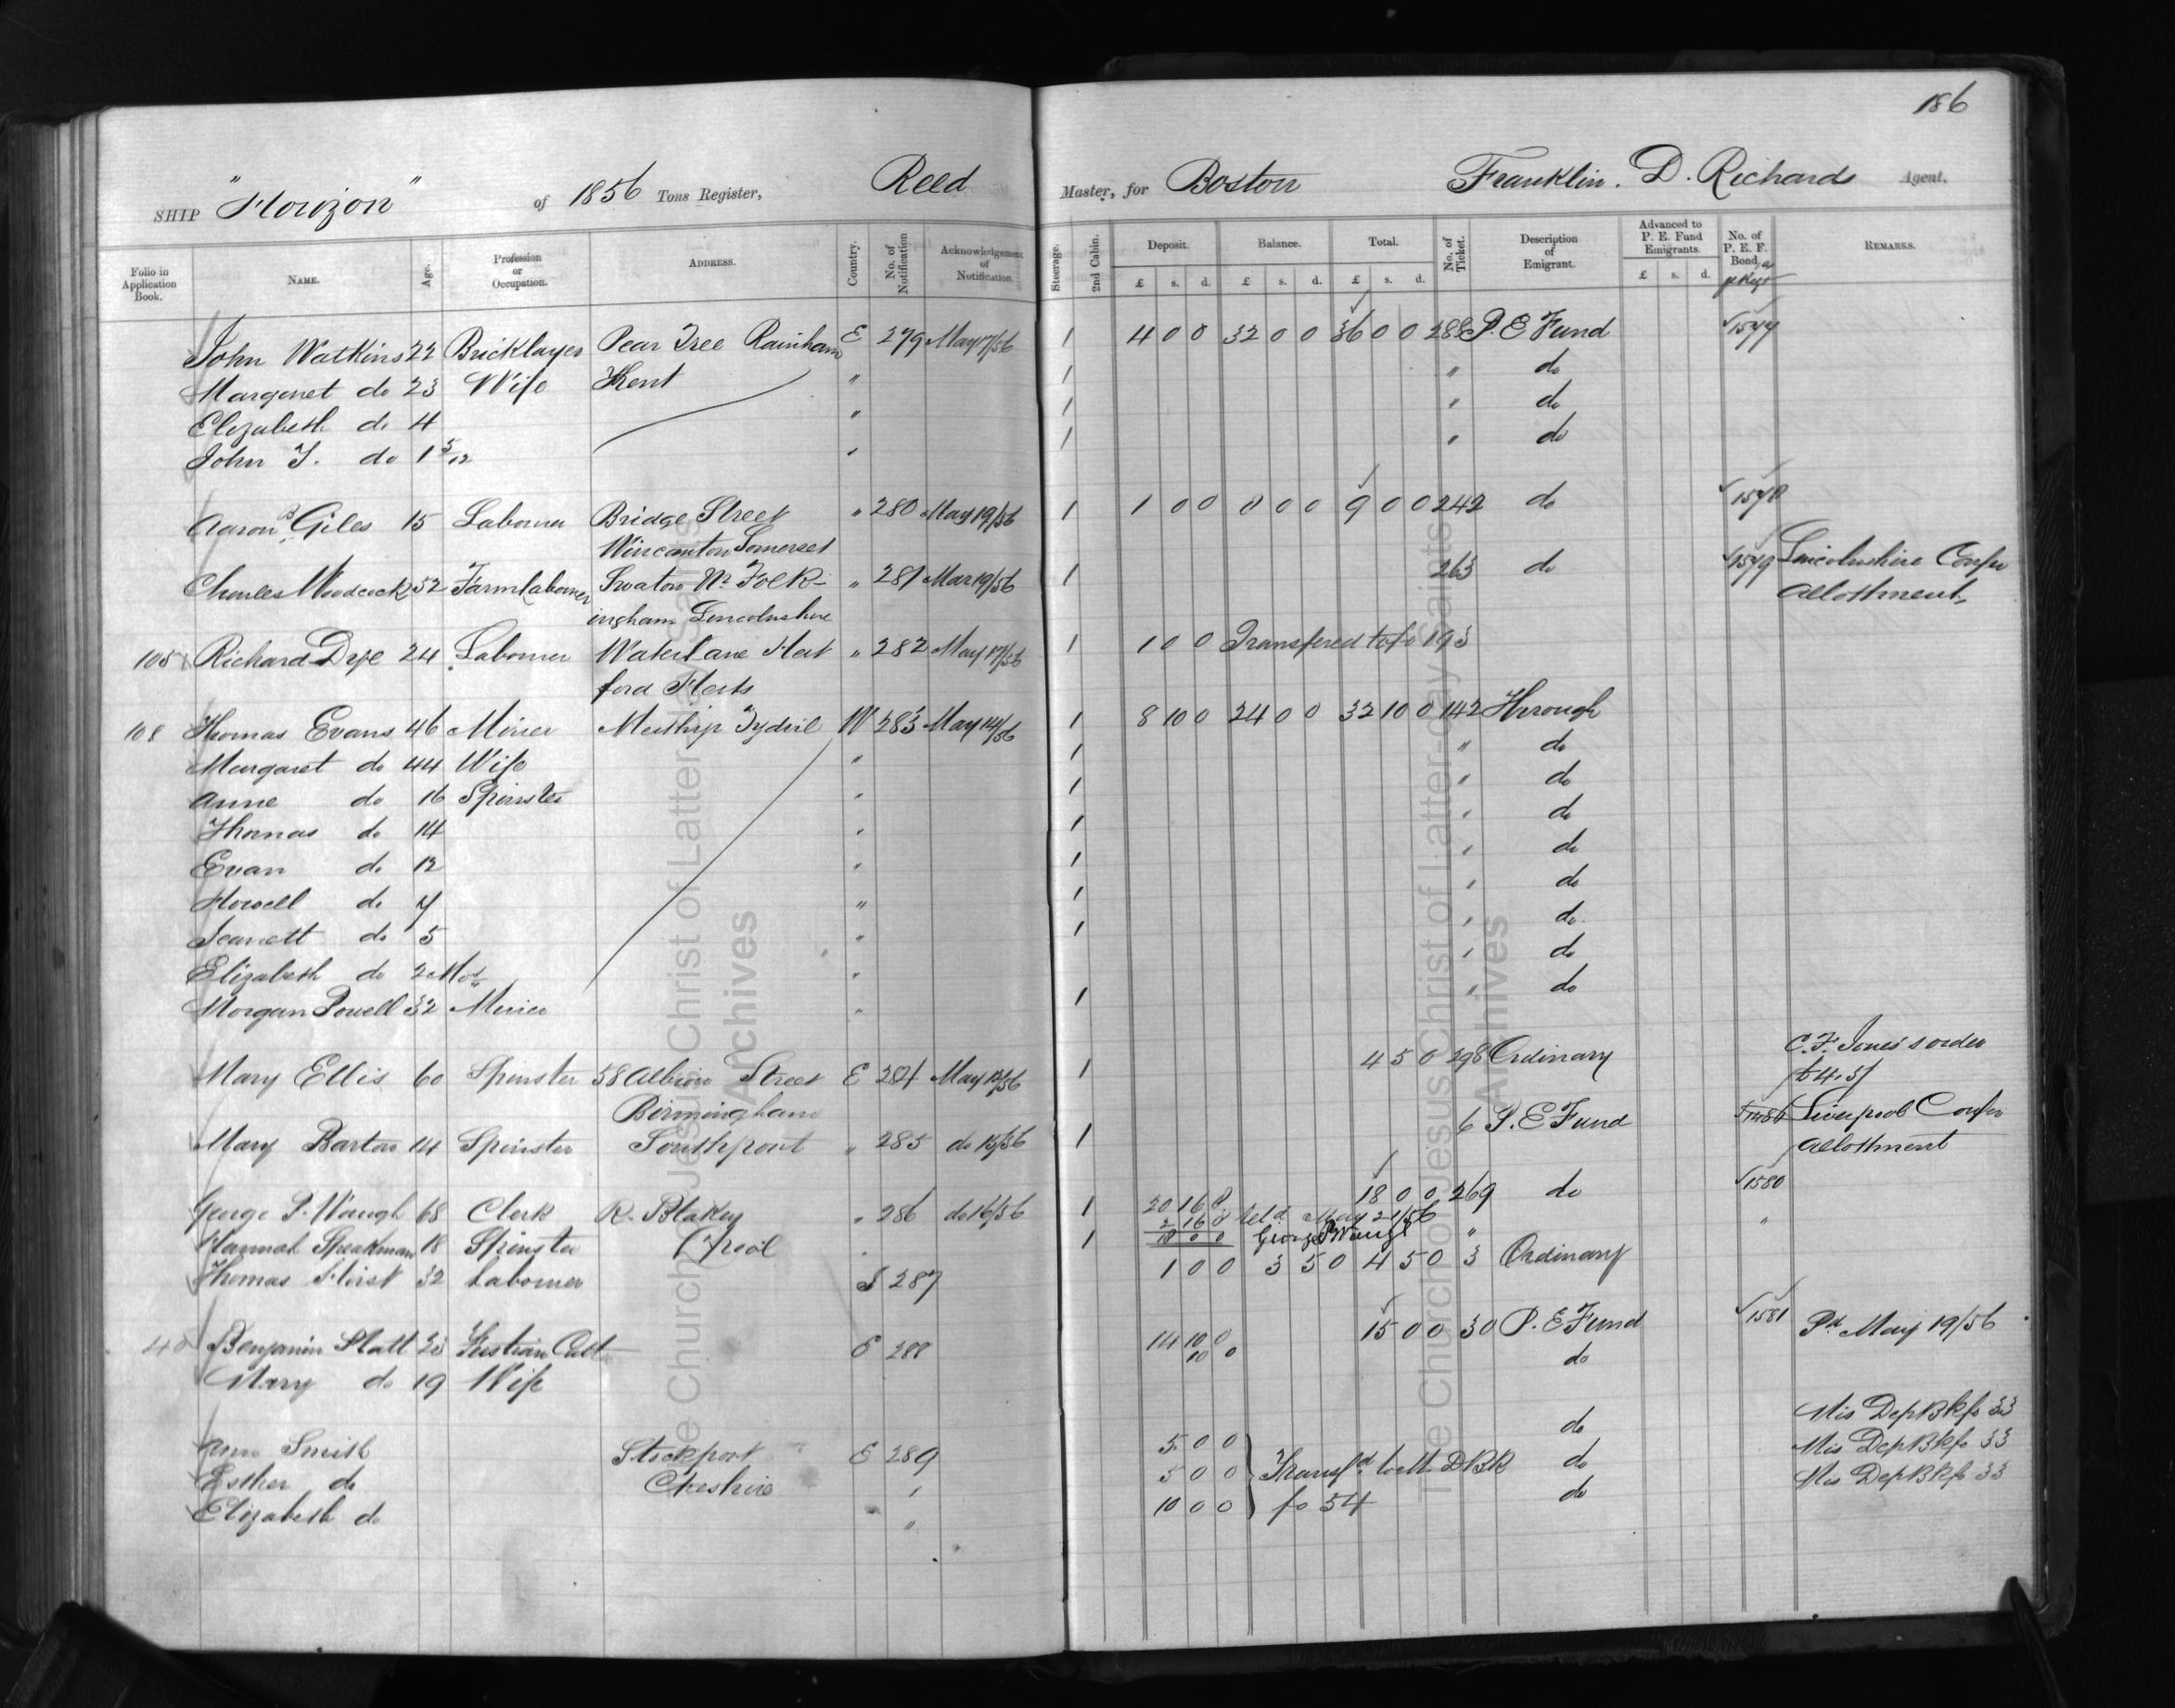 186
SHIP "Horizon" of 1856 Tons Register, Reed Master, for Boston Franklin. D. Richards Agent.
Folio in Application Book. NAME. Age. Profession or Occupation. ADDRESS. Country. No. of Notification Acknowledgement of Notification. Steerage. 2nd Cabin. Deposit. £ s. d. Balance. £ s. d. Total. £ s. d. No. of Ticket. Description of Emigrant. Advanced to P. E. Fund Emigrants. £ s. d. No. of P. E. F. Bond. REMARKS.
John Watkins 22 Bricklayer Pear Tree Rainham E 279 May 17/56 1 4 0 0 32 0 0 36 0 0 288 P. E Fund 1577
Margaret do 23 Wife Kent " 1 " do
Elizabeth do 4 " 1 " do
John T. do 1 3/12 " 1 " do
Aaron B Giles 15 Laborer Bridge Street " 280 May 19/56 1 1 0 0 8 0 0 9 0 0 242 do 1578
Wincanton Somerset
Charles Woodcock 52 Farm Laborer Swaton Nr Folk- " 281 Mar 19/56 1 263 do 1579 Lincolnshire Confce
ingham Lincolnshire Allothment
105 Richard Dye 24 Laborer Water Lane Hert " 282 May 17/56 1 1 0 0 Transfered to fo 193
ford Herts
108 Thomas Evans 46 Miner Merthyr Tydvil W 283 May 14/56 1 8 10 0 24 0 0 32 10 0 142 Through
Margaret do 44 Wife " 1 " do
Anne do 16 Spinster " 1 " do
Thomas do 14 " 1 " do
Evan do 12 " 1 " do
Howell do 7 " 1 " do
Jeanett do 5 " 1 " do
Elizabeth do 2 Mos " " do
Morgan Powell 32 Miner " 1 " do
Mary Ellis 60 Spinster 58 Albion Street E 284 May 1 4 5 0 298 Ordinary C. F. Jones's order
Birmingham £4.5/
Mary Barton 14 Spinster Southport " 285 do 15/56 1 6 P. E Fund Liverpool Confce
Allothment
George P. Waugh 68 Clerk R. Blakey " 286 do 16/56 1 20 16 8 18 0 0 269 do 1580
2 16 8 Retd May 21/56
Hannah Speakman 18 Spinster L'pool " 1 18 0 0 George P Waugh " "
Thomas Hirst 32 Laborer S 287 1 0 0 3 5 0 4 5 0 3 Ordinary
40 Benjamin Platt 23 Fustian Cutt E 288 14 10 0 15 0 0 30 P. E Fund 1581 Pd May 19/56
10 0
Mary do 19 Wife do
Ann Smith Stockport E 289 5 0 0 do Mis Dep Bk fo 33
Esther do Cheshire " 5 0 0 Transfd to M. D Bk do Mis Dep Bk fo 33
Elizabeth do " 10 0 0 fo 54 do Mis Dep Bk fo 33
The Church of Jesus Christ of Latter-day Saints
Archives
The Church of Jesus Christ of Latter-day Saints
Archives